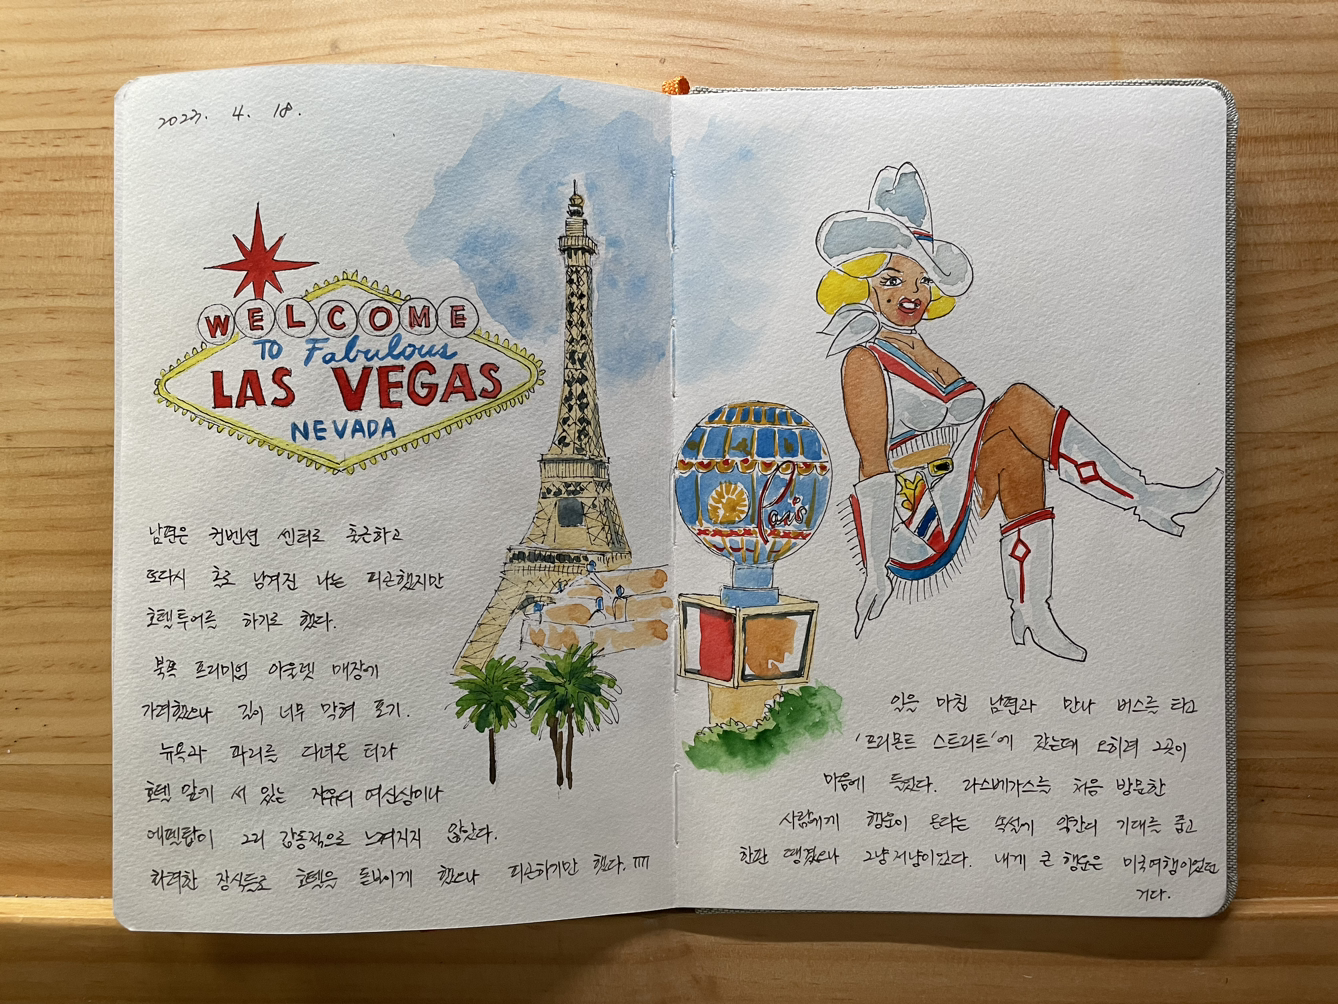 2023. 4. 18.
WELCOME
TO Fabulous
LAS VEGAS
NEVADA
남편은 컨벤션 센터로 출근하고
또다시 홀로 남겨진 나는 피곤했지만
호텔투어를 하기로 했다.
북쪽 프리미엄 아울렛 매장에
가려했으나 길이 너무 막혀 포기.
뉴욕과 파리를 다녀온 터라
호텔 앞에 서 있는 자유의 여신상이나
에펠탑이 그리 감동적으로 느껴지지 않았다.
화려한 장식들로 호텔을 돋보이게 했으나 피곤하기만 했다.
Paris
일을 마친 남편과 만나 버스를 타고
'프리몬트 스트리트'에 갔는데 오히려 그곳이
마음에 들었다. 라스베가스를 처음 방문한
사람에게 행운이 온다는 속설에 약간의 기대를 품고
한판 땡겼으나 그냥저냥이었다. 내게 큰 행운은 미국여행이었던
거다.